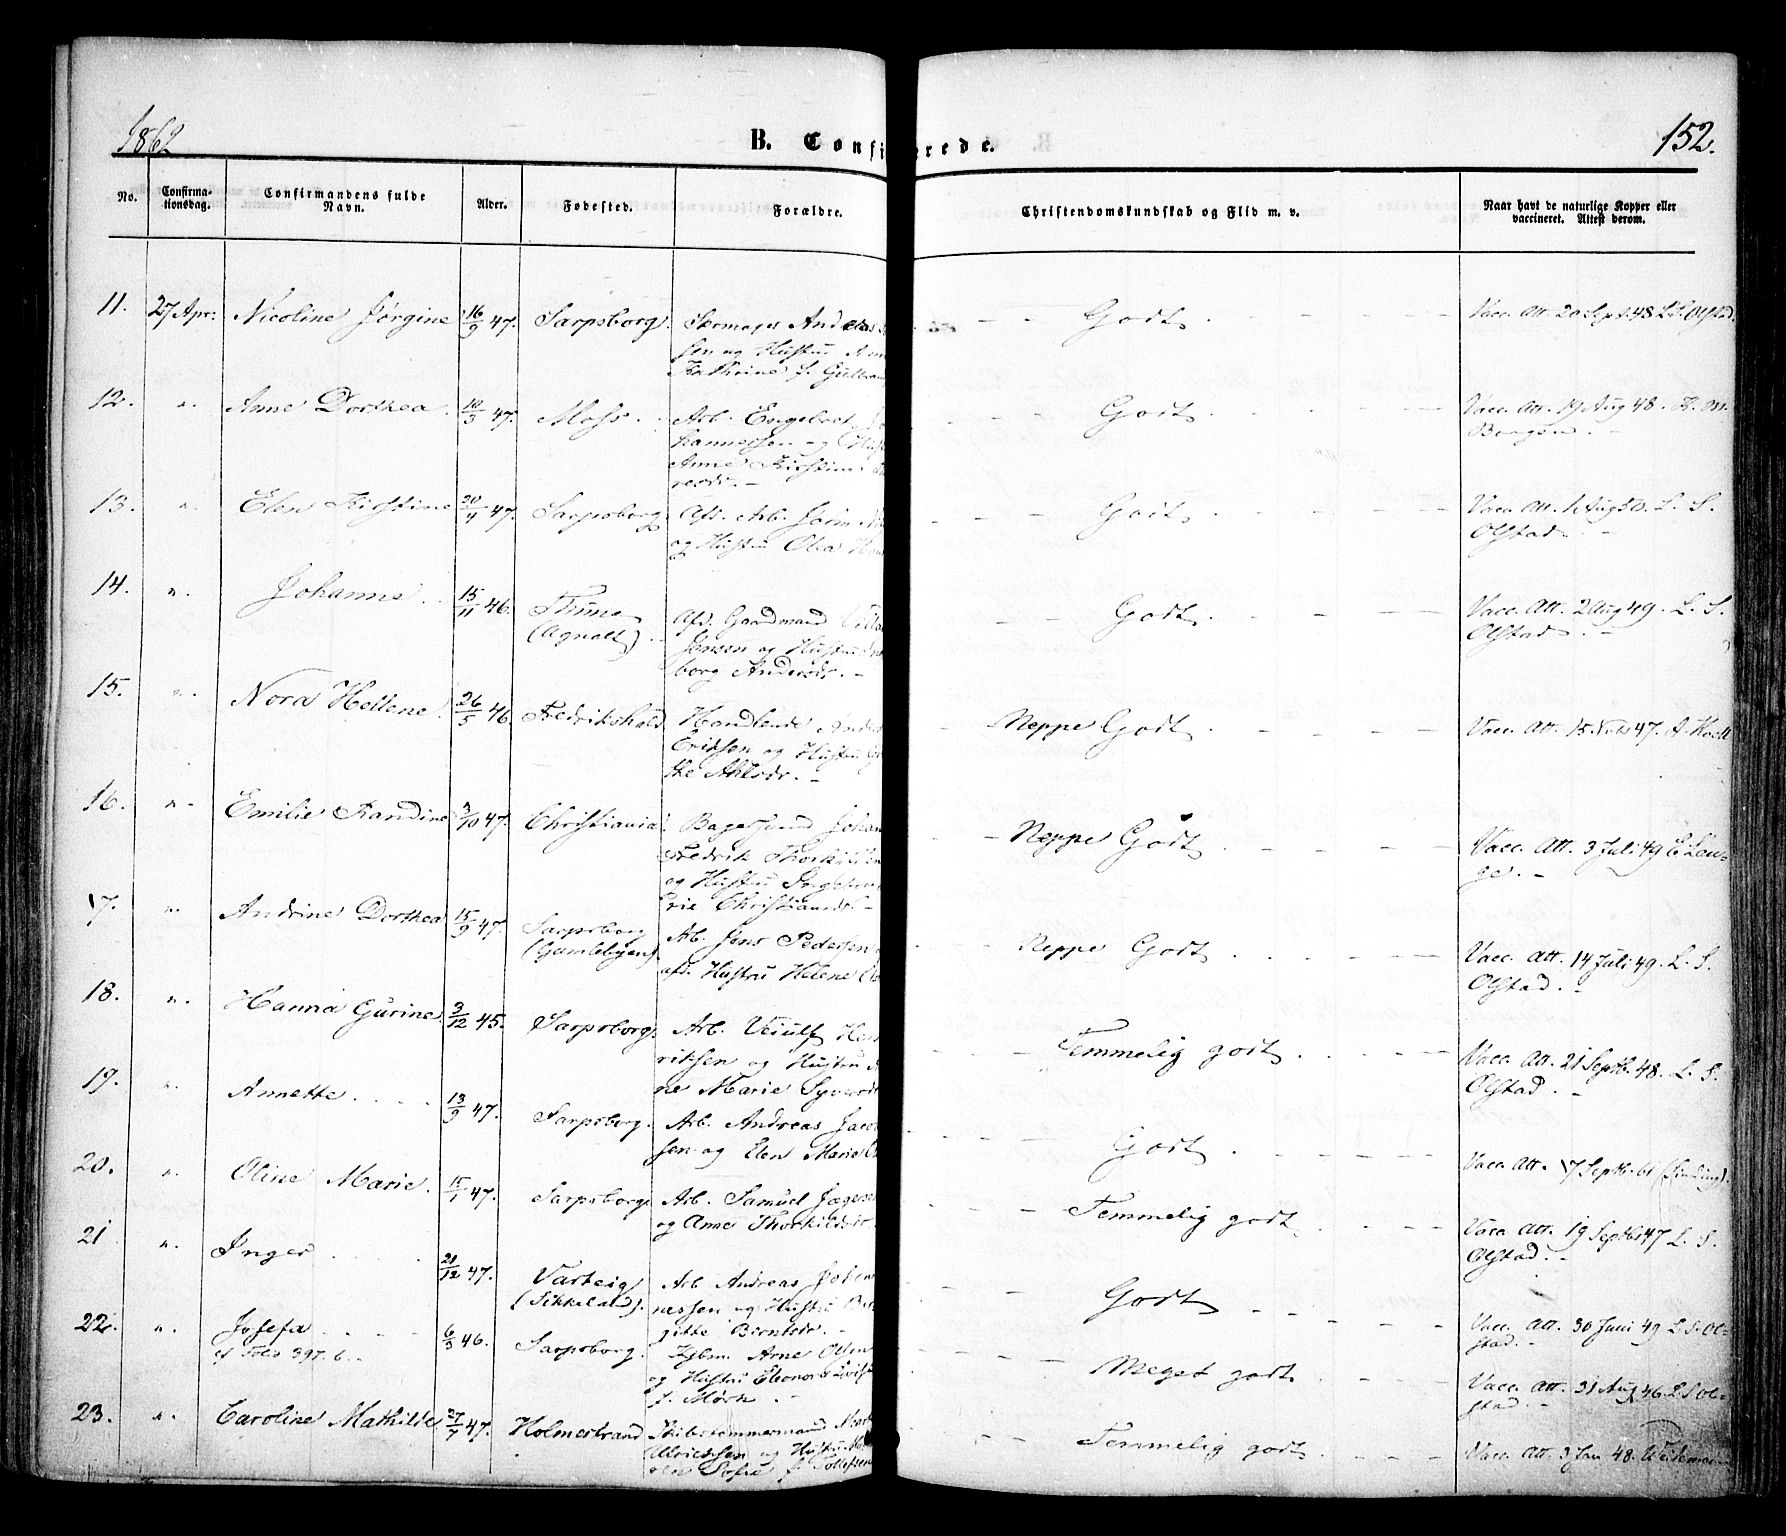 1862
B. Confi rede.
152.
No.
Confirma-
tionsdag.
Confirmandens fulde
Navn.
Alder.
Fødested.
Forældre.
Christendomskundskab og Flid m. v.
Naar havt de naturlige Kopper eller
vaccineret. Attest derom.
11. 27 Apr: Nicoline Jørgine 16/9 47. Sarpsborg. And
sen og Hustru
Kathrine f. Gulbrand
Godt
Vacc. Att. 20 Sept. 48 L. S. Olstad.
12. " Anne Dorthea. 10/3 47. Moss. Arb. Engebret
hannessen og Hus
Anne Kirstine
Godt
Vacc. Att. 19 Aug 48. H. M.
Bergen.
13. " Elen Kirstine 30/4 47. Sarpsborg. Afd. Arb.
og Hustru Olea
Godt
Vacc. Att. 1 Aug 50. L. S.
Olstad
14. " Johanne 15/11 46. Thune
(Agnalt). Afd. Gaardmand
Jensen og Hustru
borg Andersdr.
Godt
Vacc. Att. 2 Aug 49. L. S.
Olstad
15. " Nora Hellene. 26/5 46. Fredrikshald Handlende
Eriksen og Hustru
Neppe Godt
Vacc. Att. 15 47. A.
16. " Emilie Randine /10 47. Christiania. Bagersvend Johan
Fredrik Thorkildsen
og Hustru
rie Christiansdr.
Neppe Godt
Vacc. Att. 3 Juli 49 C. Lan-
ge.
17. " Andrine Dorthea 15/9 47. Sarpsborg
(Gamlebyen). Arb. Jens Pedersen
afd. Hustru Helene
Neppe Godt
Vacc. Att. 14 Juli 49. L. S.
Olstad.
18. " Hanna Gurine. 3/12 45. Sarpsborg. Arb. Hen
riksen og Hustru
ne Marie Syversdr
Temmelig godt
Vacc. Att. 21 Septb. 48. L. S.
Olstad.
19. " Annette 13/9 47. Sarpsborg. Arb. Andreas Jaco
sen og Elen Marie
Godt
Vacc. Att. 17 Septb. 61 (Finding).
20. " Oline Marie. 15/1 47. Sarpsborg. Arb. Samuel
og Anne Thorkildsdr.
Temmelig godt
Vacc. Att. 19 Septb 47 L. S.
Olstad.
21 " Inger 21/12 47. Varteig
(Sikkeland). Arb. Andreas Johan
nessen og Hustru
gitte Berntsdr.
Godt
Vacc. Att. 30 Juni 49 L. S. Ol-
stad.
22. " Josefa
cf Folio 397. 6. 6/3 46. Sarpsborg. Kjbm. Arne Olsen
og Hustru Eleonora
f. Mørk
Meget godt
Vacc. Att. 31 Aug 46. L. S. Ol-
stad.
23. " Caroline Mathilde 27/7 47. Holmestrand Skibstømmermand
Ulrichsen og Hustru
Sofie f. Tollefsen
Temmelig godt
Vacc. Att. 3 Jan 48.